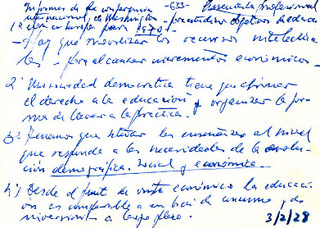 Informe de la conferencia - 633 - Desarrollo profesional
internacional, de Washington - 
1º - en Europa para 1970 -
- Hay que movilizar los recursos intelectua
les - para alcanzar incrementos económicos -
2º Una sociedad democrática tiene que afirmar
el derecho a la educación y organizar la for
ma de llevar a la práctica.
3º Tenemos que situar las enseñanzas al nivel
que responda a las necesidades de la evolu-
ción demográfica, social y económica.
4º) Desde el punto de vista económico la educa
ción es comparable a un bien de consumo y de
inversión a largo plazo.
3/2/28